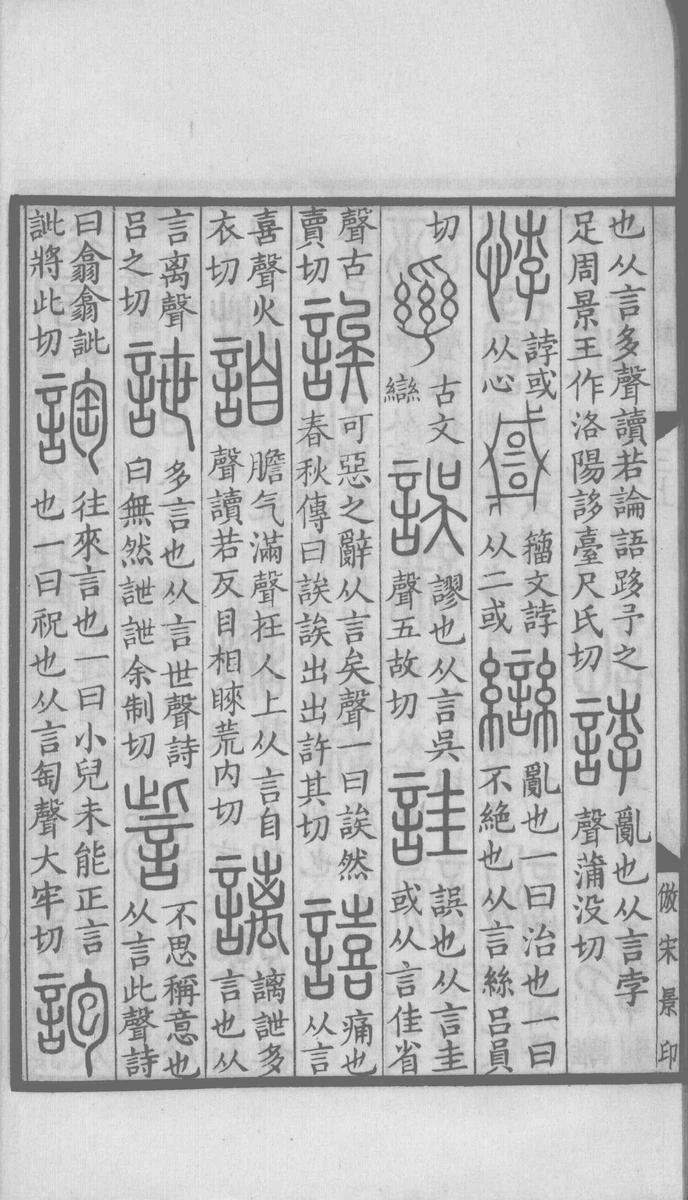 也从言多聲讀若論語跢予之足周景王作洛陽誃臺尺氏切 誖 亂也从言孛聲蒲没切
悖 誖或从心 𢨋 籒文誖从二或 䜌 亂也一曰治也一曰不絶也从言絲吕員
切 𤔔 古文䜌 誤 謬也从言吳聲五故切 詿 誤也从言圭或从言佳省
聲古賣切 誒 可惡之辭从言矣聲一曰誒然春秋傳曰誒誒出出許其切 譆 痛也从言
喜聲火衣切 詯 膽气滿聲抂人上从言自聲讀若反目相睞荒内切 謧 謧詍多言也从
言离聲吕之切 詍 多言也从言世聲詩白無然詍詍余制切 訾 不思稱意也从言此聲詩
曰翕翕訿訿將此切 詜 往來言也一曰小兒未能正言也一曰祝也从言匋聲大牢切 䛌
倣宋景印